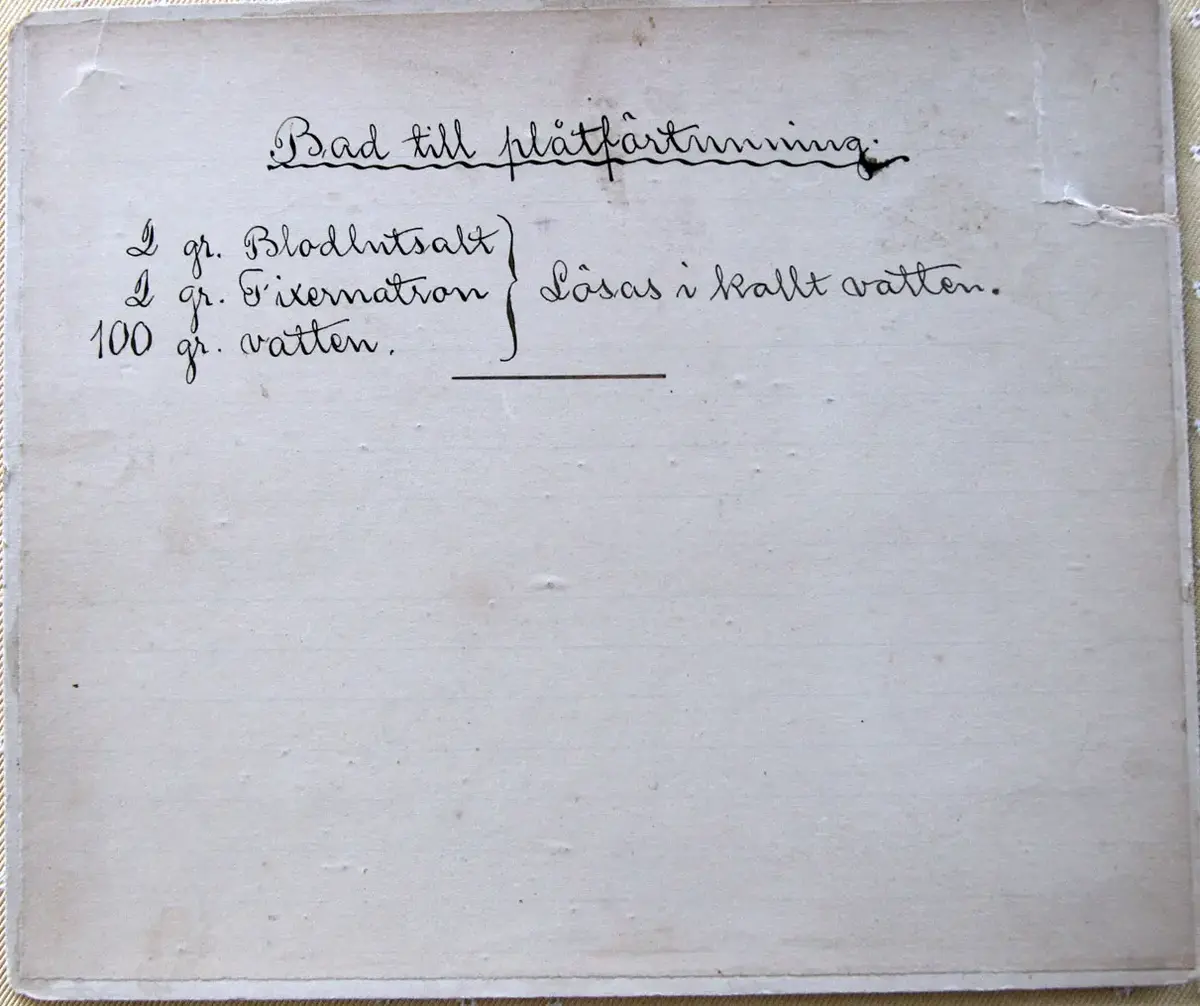 Bad till plåtförtunning.
2 gr. Blodlutsalt
2 gr. Fixernatron
100 gr. vatten.
Lösas i kallt vatten.